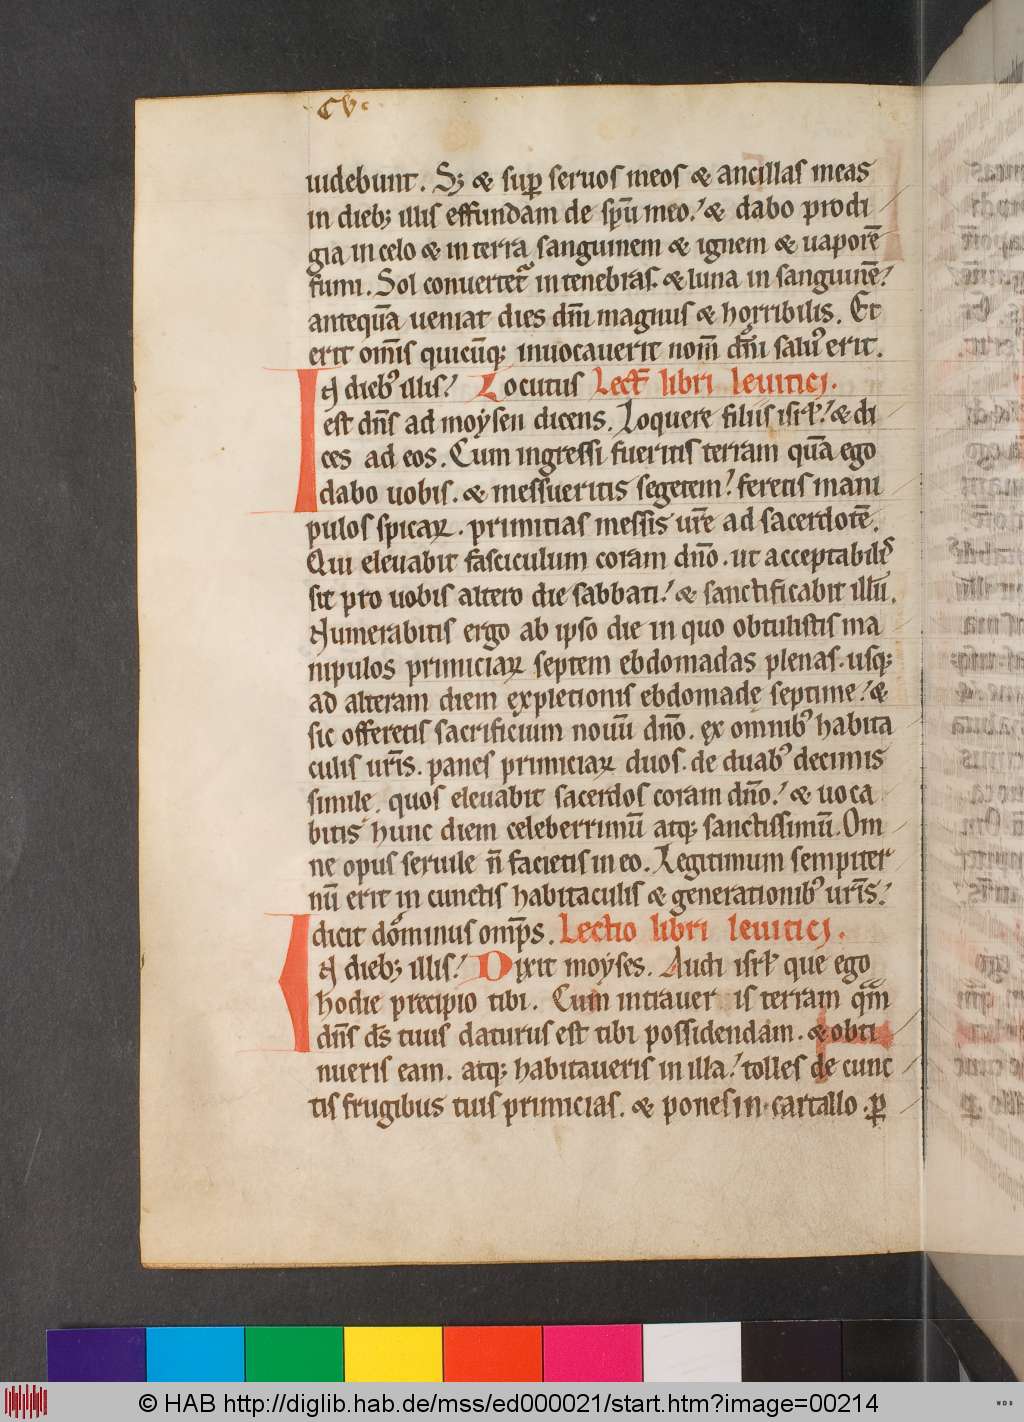 CV.
uidebunt. S; & sup̱ seruos meos & ancillas meas
in dieb; illis effundam de sp̄u meo. & dabo prodi
gia in celo & in terra sanguinem & ignem & uaporē
fumi. Sol conuertet᷑ in tenebras. & luna in sanguinē.
anteq̄a ueniat dies dn̄i magnus & horribilis. Et
erit om̄is quicūq; inuocauerit nom̄ dn̄i saluꝰ erit.
In diebꝰ illis. Locutus Lect̄ libri leuitici.
est dn̄s ad moysen dicens. Loquere filiis isrł. & di
ces ad eos. Cum ingressi fueritis terram quā ego
dabo uobis. & messueritis segetem. feretis mani
pulos spicaꝝ. primitias messis ur̄e ad sacerdotē.
Qui eleuabit fasciculum coram dn̄o. ut acceptabilis
sit pro uobis altero die sabbati. & sanctificabit illū.
Numerabitis ergo ab ipso die in quo obtulistis ma
nipulos primiciaꝝ septem ebdomadas plenas. usq;
ad alteram diem expletionis ebdomadę septime. &
sic offeretis sacrificium nouū dn̄o. ex omnibꝰ habita
culis ur̄is. panes primiciaꝝ duos. de duabꝰ decimis
simile. quos eleuabit sacerdos coram dn̄o. & uoca
bitis hunc diem celeberrimū atq; sanctissimū. Om
ne opus seruile n̄ facietis in eo. Legitimum sempiter
nū erit in cunctis habitaculis & generationibꝰ ur̄is.
dicit dominus omp̄s. Lectio libri leuitici.
In dieb; illis. Dixit moyses. Audi isrł que ego
hodie precipio tibi. Cum intrauer is terram qm̄
dn̄s ds̄ tuus daturus est tibi possidendam. & obti
nueris eam. atq; habitaueris in illa. tolles de cunc
tis frugibus tuis primicias. & pones in cartallo. p̱
© HAB http://diglib.hab.de/mss/ed000021/start.htm?image=00214